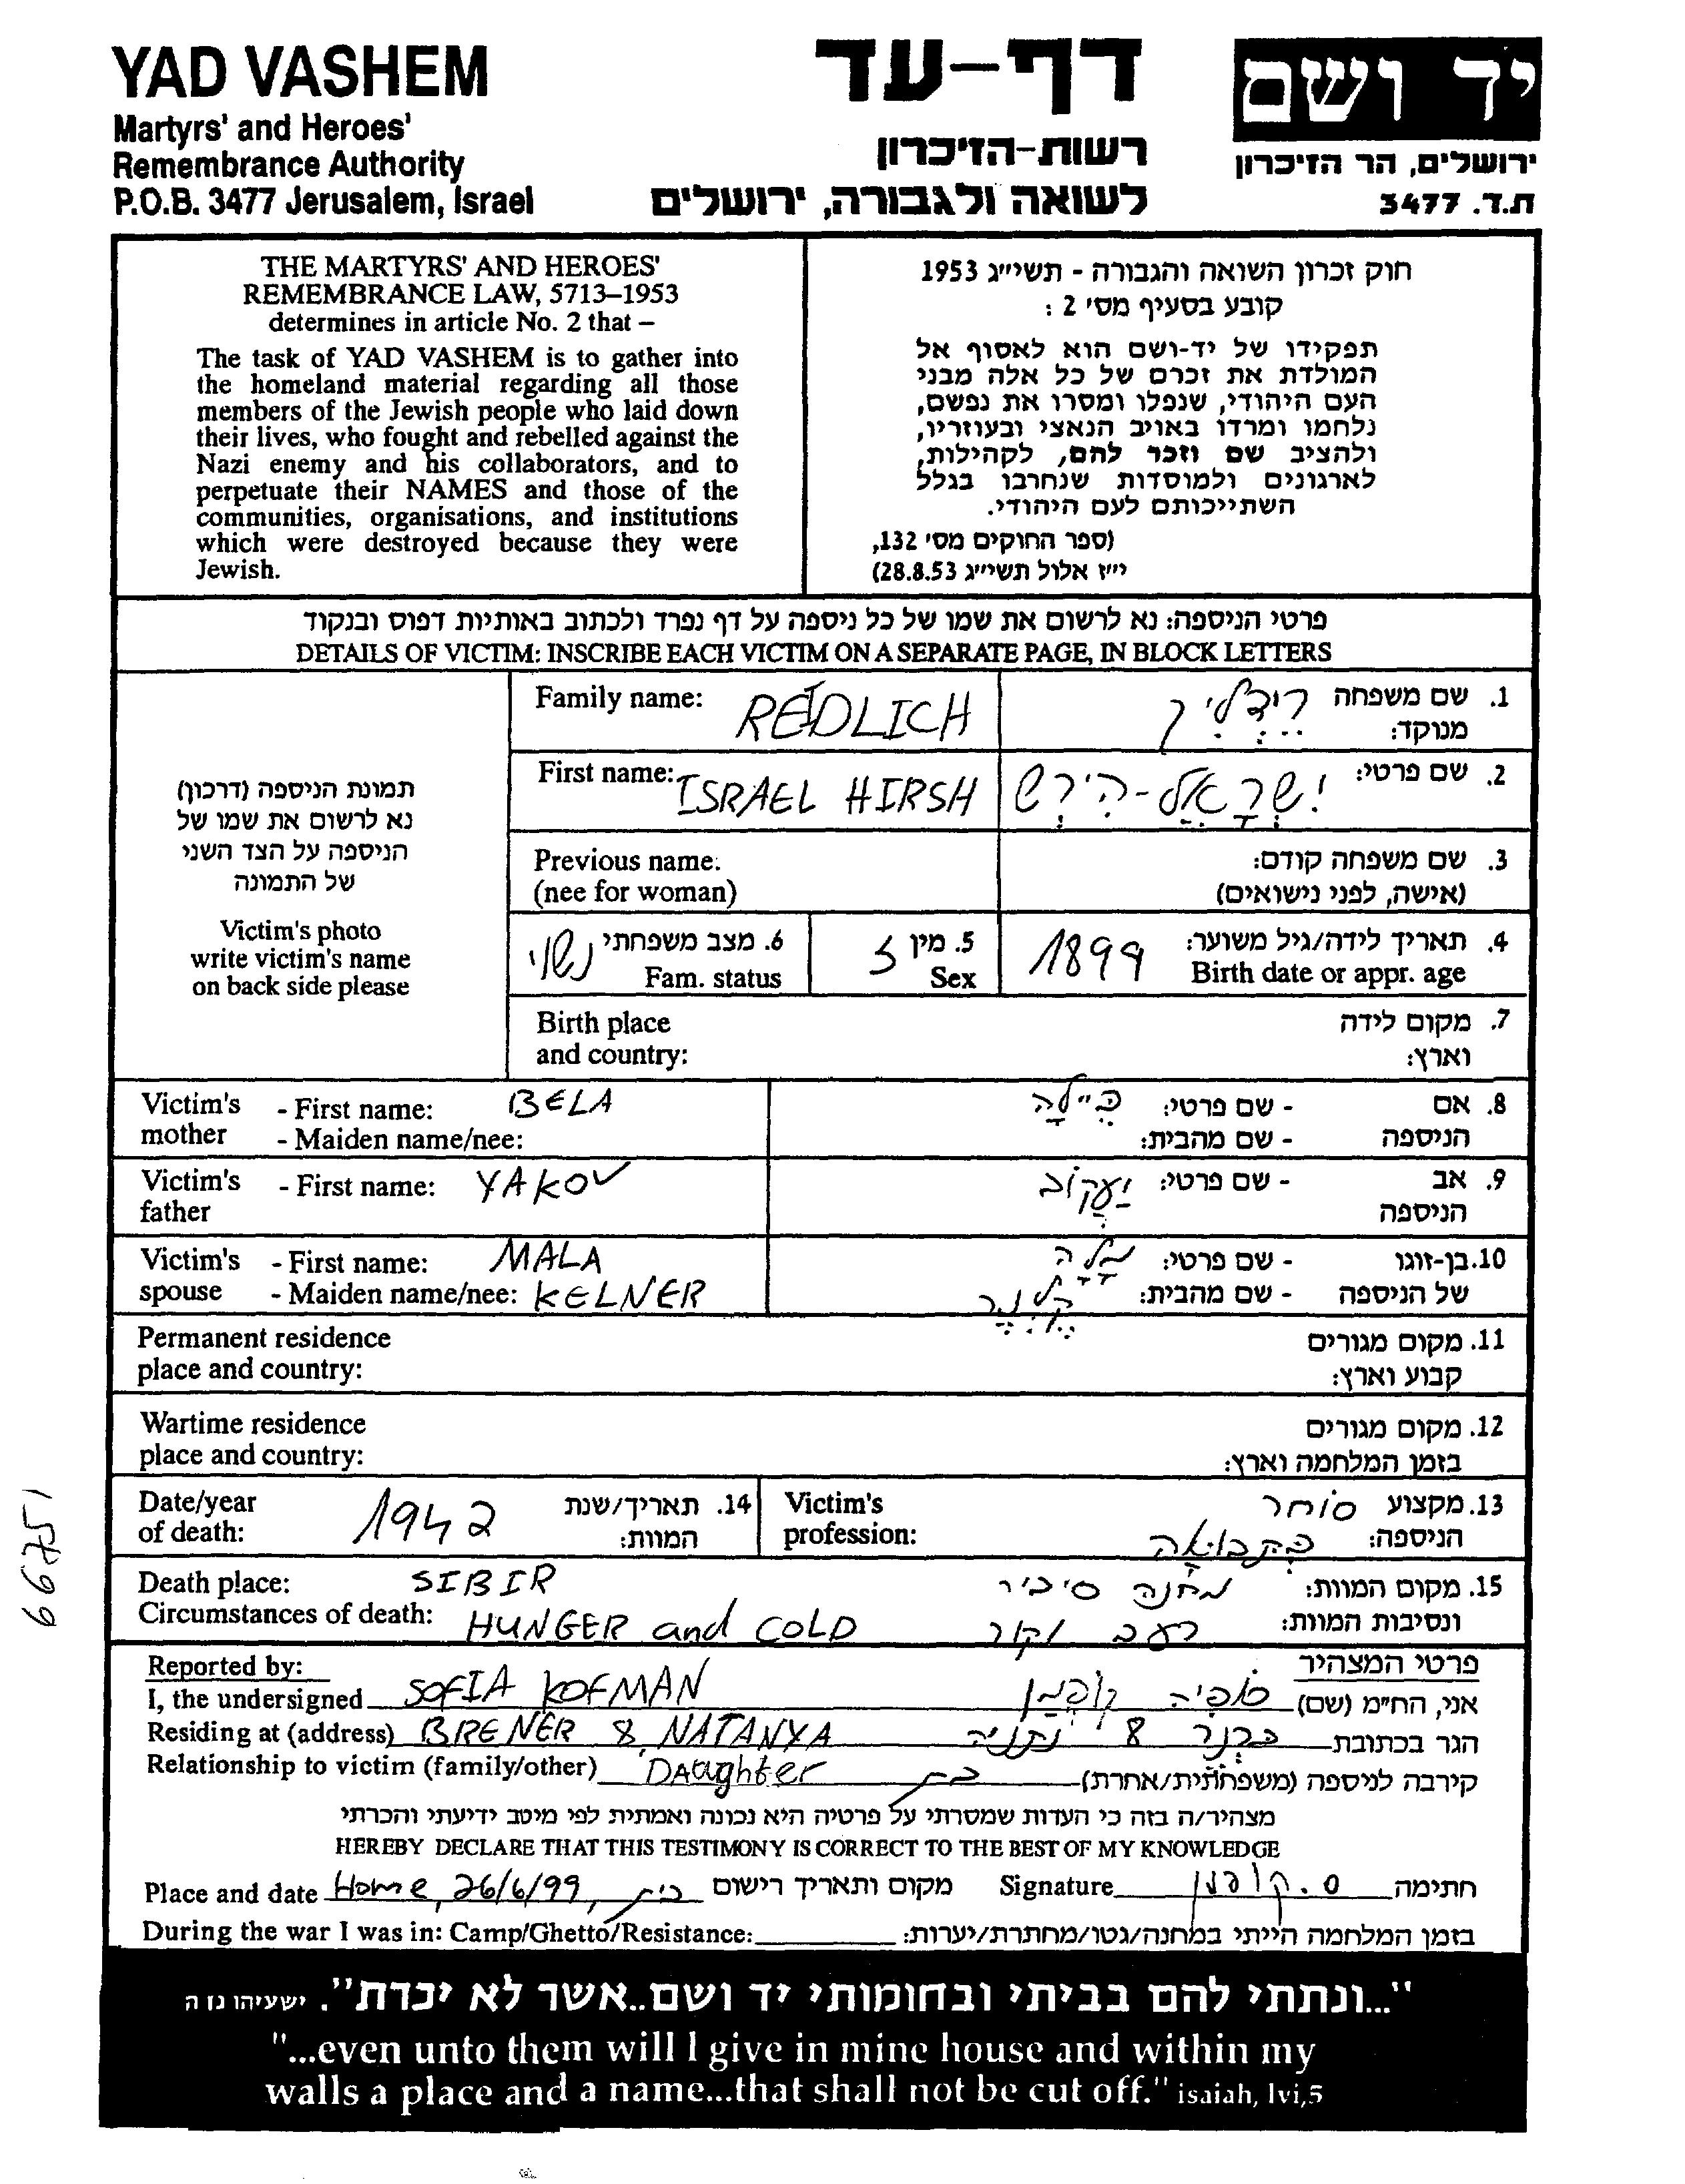 YAD VASHEM
Martyrs' and Heroes'
Remembrance Authority
P.O.B. 3477 Jerusalem, Israel
דף-עד
רשות-הזיכרון
לשואה ולגבורה, ירושלים
יד ושם
ירושלים, הר הזיכרון
ת.ד. 3477
THE MARTYRS' AND HEROES'
REMEMBRANCE LAW, 5713–1953
determines in article No. 2 that –
The task of YAD VASHEM is to gather into
the homeland material regarding all those
members of the Jewish people who laid down
their lives, who fought and rebelled against the
Nazi enemy and his collaborators, and to
perpetuate their NAMES and those of the
communities, organisations, and institutions
which were destroyed because they were
Jewish.
חוק זכרון השואה והגבורה - תשי"ג 1953
קובע בסעיף מס' 2 :
תפקידו של יד-ושם הוא לאסוף אל
המולדת את זכרם של כל אלה מבני
העם היהודי, שנפלו ומסרו את נפשם,
נלחמו ומרדו באויב הנאצי ובעוזריו,
ולהציב שם וזכר להם, לקהילות,
לארגונים ולמוסדות שנחרבו בגלל
השתייכותם לעם היהודי.
(ספר החוקים מס' 132,
י"ז אלול תשי"ג 28.8.53)
פרטי הניספה: נא לרשום את שמו של כל ניספה על דף נפרד ולכתוב באותיות דפוס ובנקוד
DETAILS OF VICTIM: INSCRIBE EACH VICTIM ON A SEPARATE PAGE, IN BLOCK LETTERS
תמונת הניספה (דרכון)
נא לרשום את שמו של
הניספה על הצד השני
של התמונה
Victim's photo
write victim's name
on back side please
Family name: REDLICH
1. שם משפחה רידליך
מנוקד:
First name: ISRAEL HIRSH
2. שם פרטי: ישראל-הירש
Previous name:
(nee for woman)
3. שם משפחה קודם:
(אישה, לפני נישואים)
6. מצב משפחתי נשוי
Fam. status
5. מין ז
Sex
4. תאריך לידה/גיל משוער: 1899
Birth date or appr. age
Birth place
and country:
7. מקום לידה
וארץ:
Victim's mother - First name: BELA
- Maiden name/nee:
8. אם הניספה - שם פרטי: ביילה
- שם מהבית:
Victim's father - First name: YAKOV
9. אב הניספה - שם פרטי: יעקוב
Victim's spouse - First name: MALA
- Maiden name/nee: KELNER
10. בן-זוגו של הניספה - שם פרטי: מלה
- שם מהבית: קלנר
Permanent residence
place and country:
11. מקום מגורים
קבוע וארץ:
Wartime residence
place and country:
12. מקום מגורים
בזמן המלחמה וארץ:
Date/year
of death: 1942
14. תאריך/שנת
המוות:
Victim's
profession:
13. מקצוע סוחר
הניספה: בתבואה
Death place: SIBIR
Circumstances of death: HUNGER and COLD
15. מקום המוות: מחנה סיביר
ונסיבות המוות: רעב וקור
Reported by:
פרטי המצהיר
I, the undersigned SOFIA KOFMAN
אני, הח"מ (שם) סופיה קופמן
Residing at (address) BRENER 8, NATANYA
הגר בכתובת ברנר 8 נתניה
Relationship to victim (family/other) DAughter
קירבה לניספה (משפחתית/אחרת) בת
מצהיר/ה בזה כי העדות שמסרתי על פרטיה היא נכונה ואמתית לפי מיטב ידיעתי והכרתי
HEREBY DECLARE THAT THIS TESTIMONY IS CORRECT TO THE BEST OF MY KNOWLEDGE
Place and date Home, 26/6/99, בית מקום ותאריך רישום
Signature ס. קופמן חתימה
During the war I was in: Camp/Ghetto/Resistance:
בזמן המלחמה הייתי במחנה/גטו/מחתרת/יערות:
"...ונתתי להם בביתי ובחומותי יד ושם..אשר לא יכרת". ישעיהו נו ה
"...even unto them will I give in mine house and within my
walls a place and a name...that shall not be cut off." isaiah, lvi,5
66751